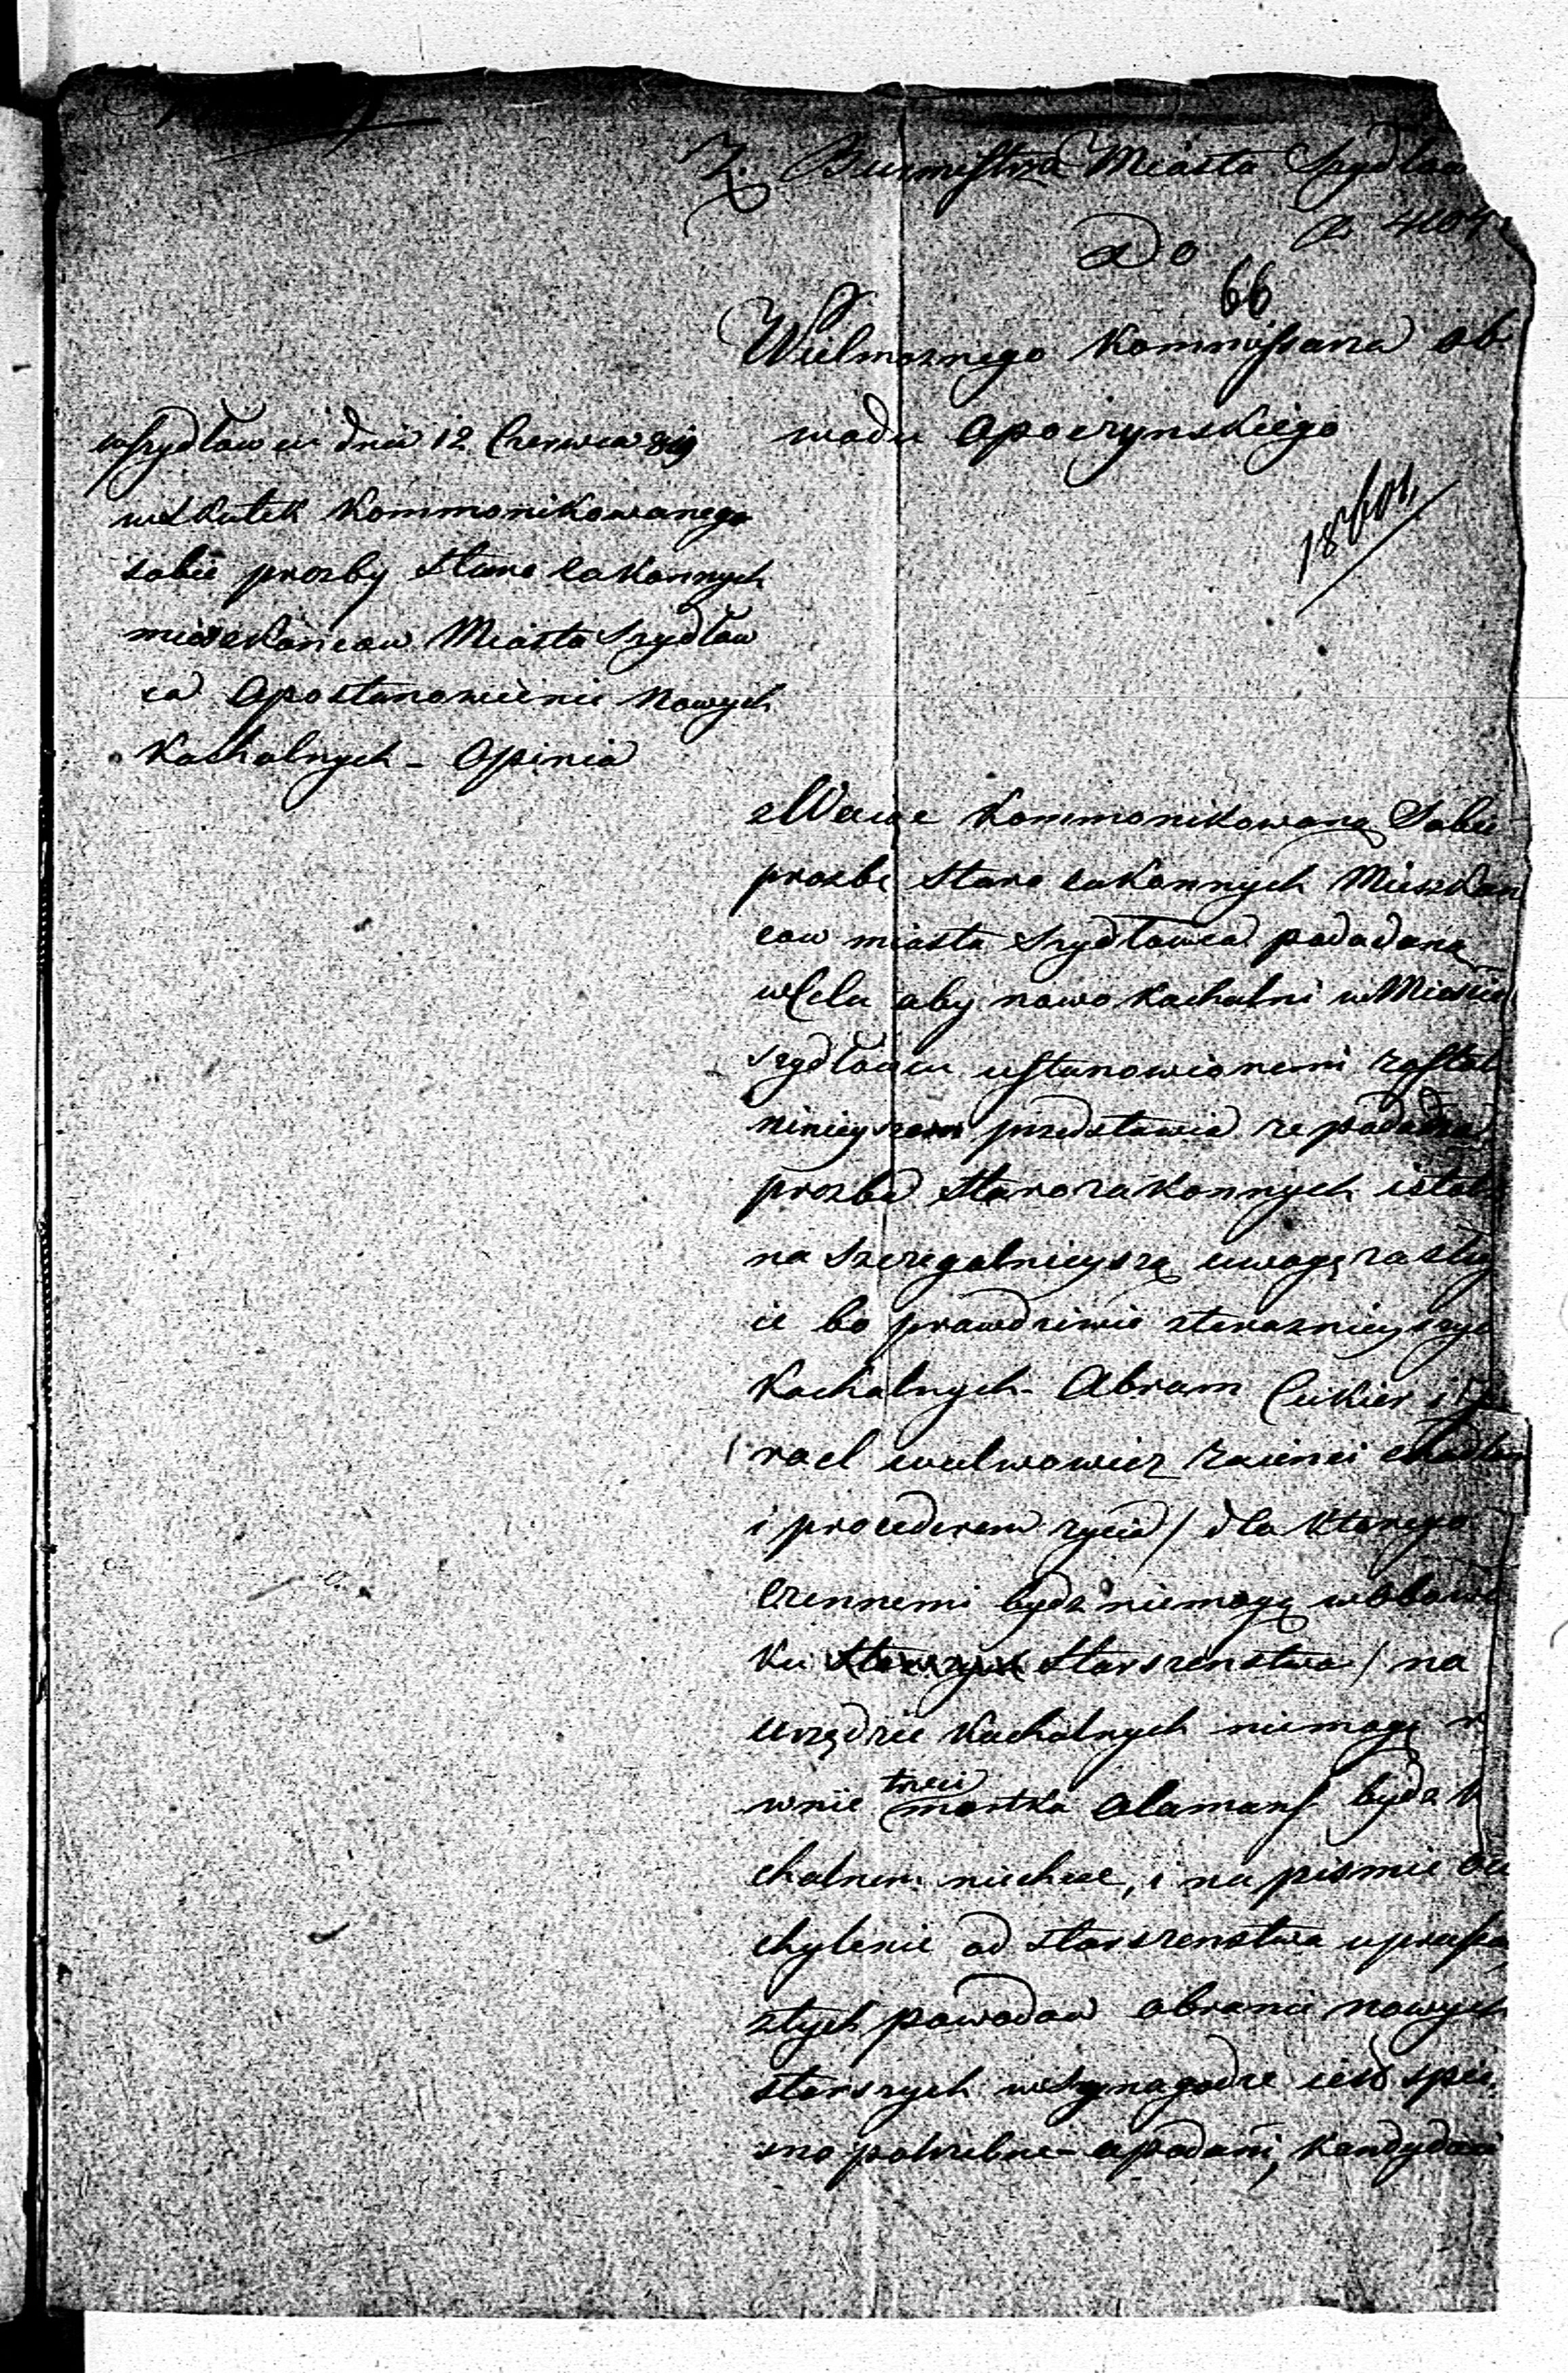 Z. Burmistrza Miasta Szydłow
Do
66
Wielmoznego Kommissarza ob
wodu Opoczynskiego
w Szydłowcu dnia 12 Czerwca 819
wskutek Kommonikowanego
sobie prozby Staro zakonnych
mieszkancow Miasta Szydłow
ca Opostanowienie Nowych
Kachalnych - Opinia
18601
Kommonikowaną Sobie
prozbe Staro zakonnych Mieszkan
cow miasta Szydłowca podadaną
w Celu aby nowo Kachalni w Miescie
Szydłowcu ustanowionemi zostali
ninieyszem przedstawia ze podadna
prozba Starozakonnych istot
na szczegulnieyszą uwagę zaslug
ie bo prawdziwie zteraznieyszych
Kachalnych - Abram Cukier i Iz
rael wulwowicz
i procederem zycia / dla ktorego
czennemi bydz niemogą wobowi
ku Starszenstwa / na
urzędzie Kachalnych niemogą
wnie trzeci moszka alamans bydz
chalnem niechce, i na pismie
chylenie od starszenstwa uprasza
ztych powodow obranie nowych
starszych w Synagodze iest spie
szno potrzebne - apodani, Kandydaci